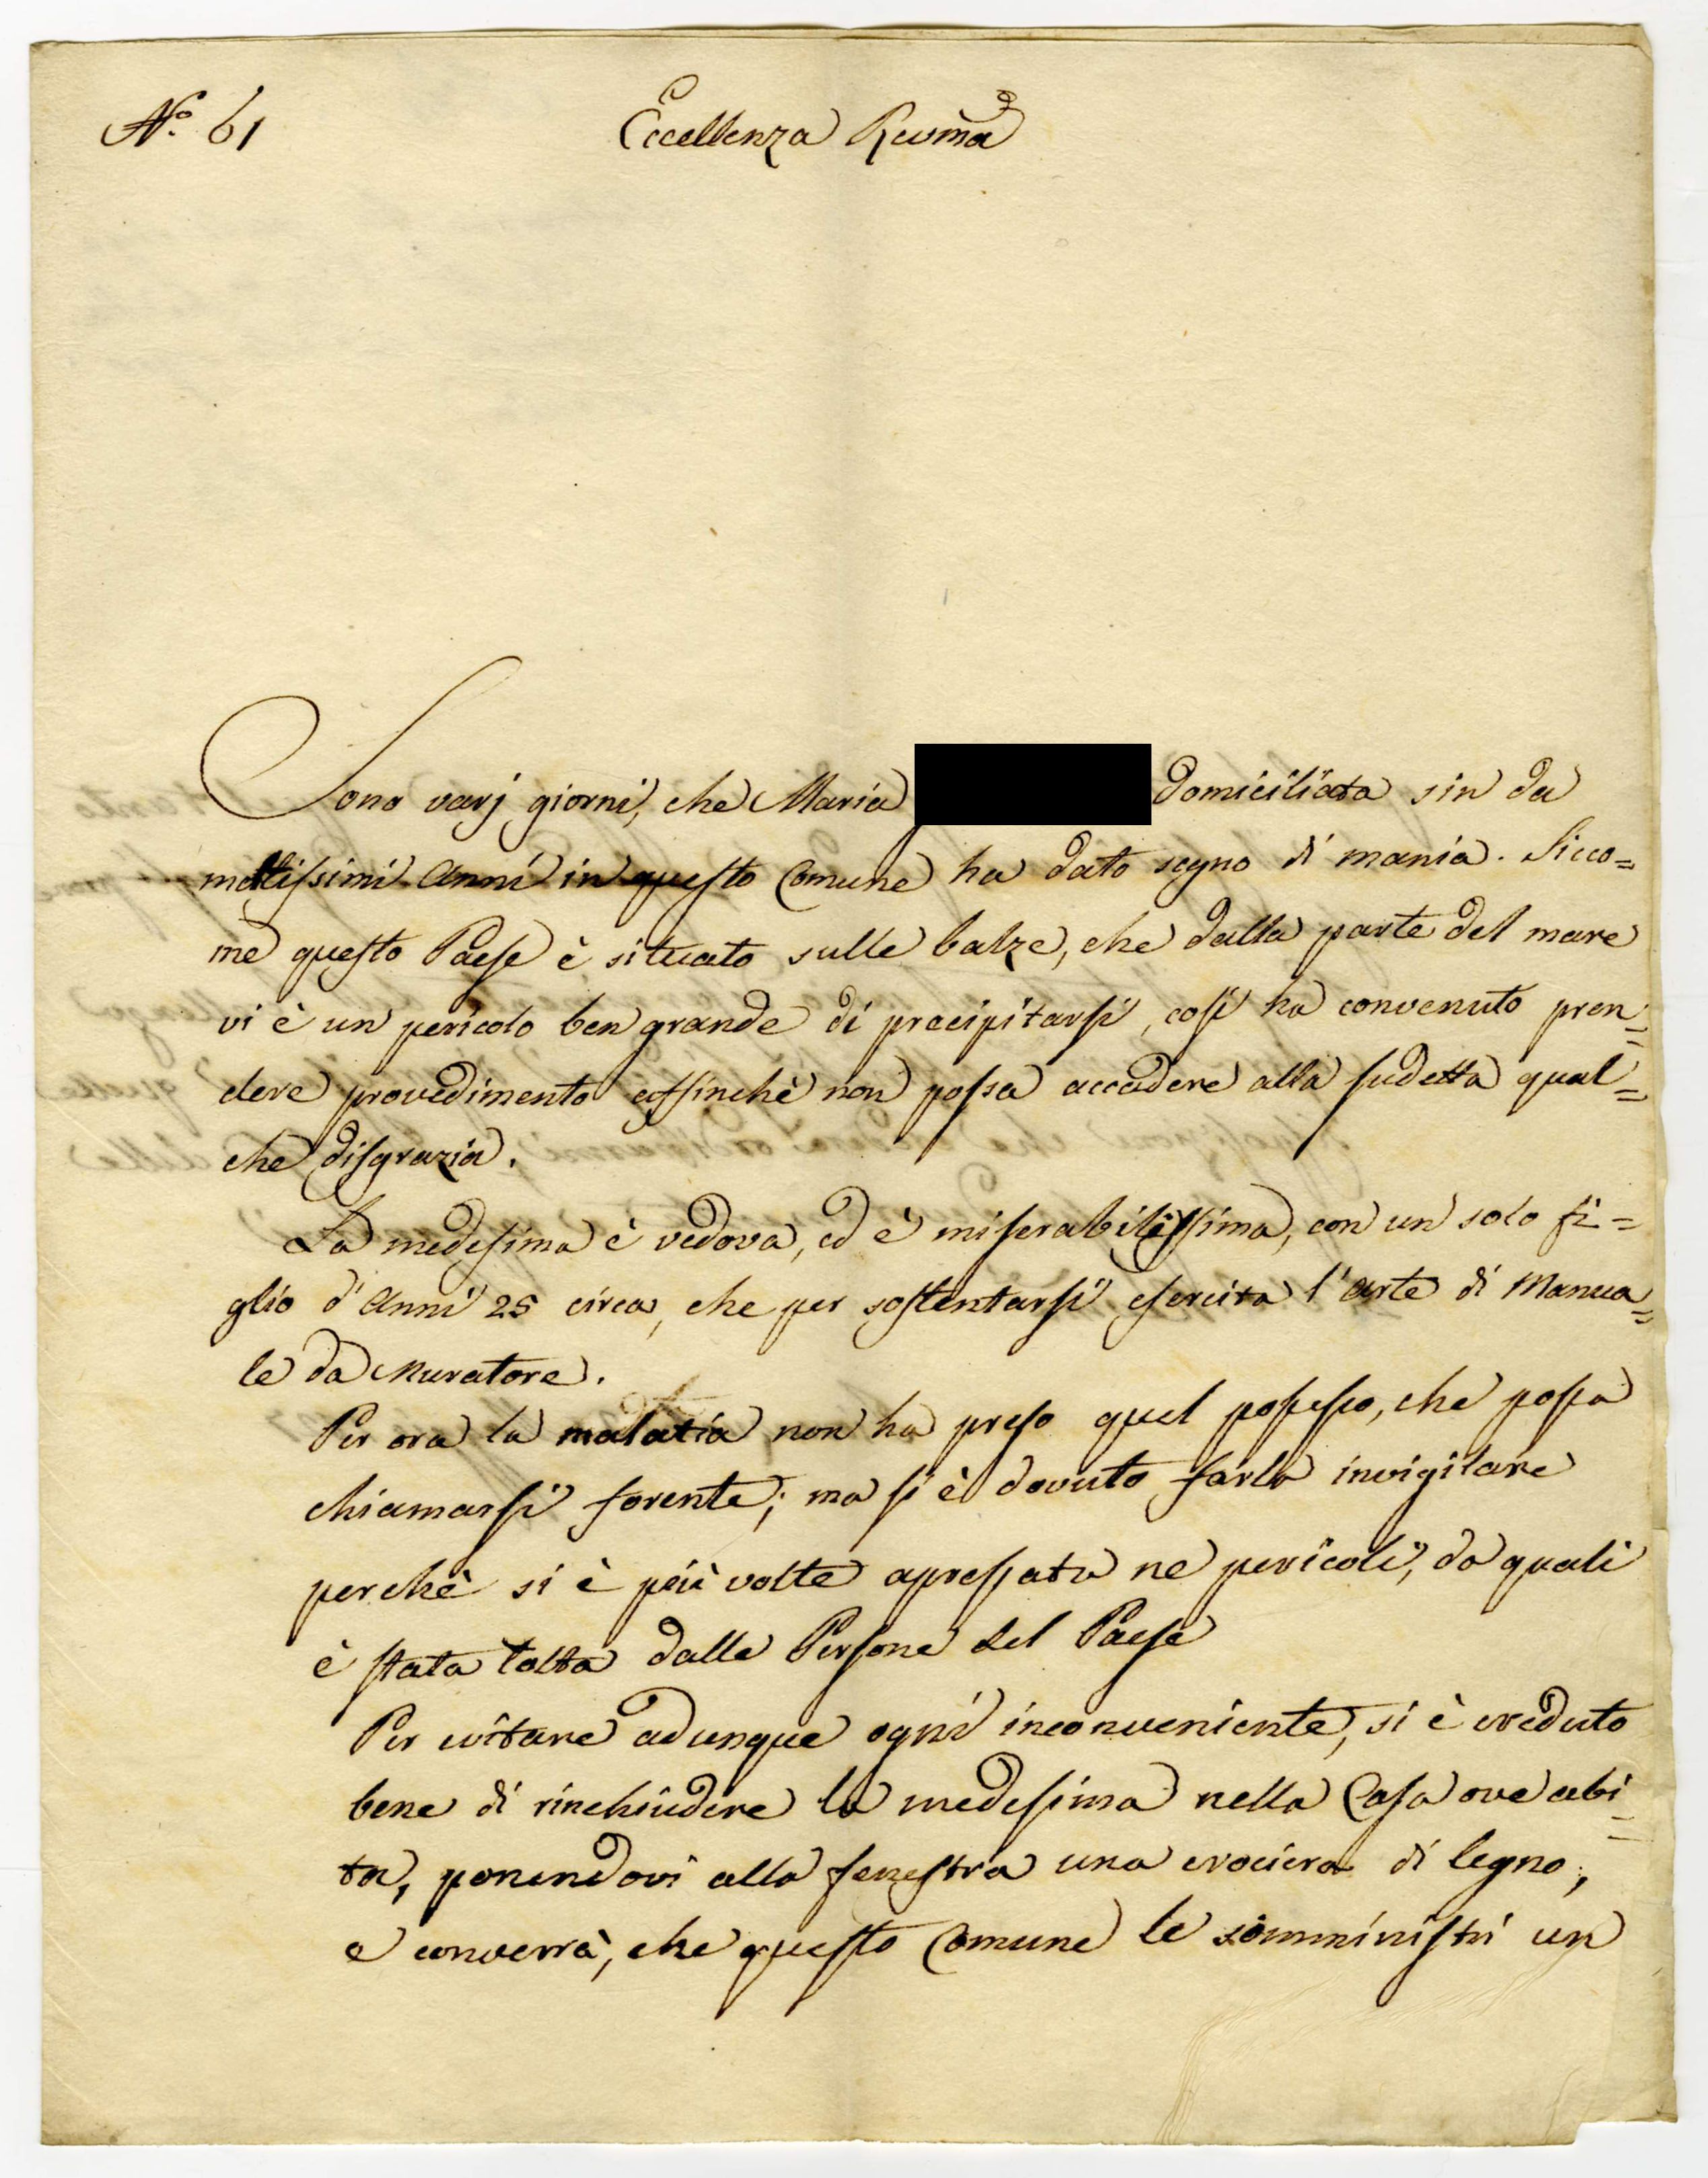 N.º 61
Eccellenza Revma
Sono varj giorni, che Maria
domiciliata sin da
moltissimi Anni in questo Comune ha dato segno di mania. Sicco=
me questo Paese è situato sulle balze, che dalla parte del mare
vi è un pericolo ben grande di precipitarsi, così ha convenuto pren=
dere provedimento affinchè non possa accadere alla sudetta qual=
che disgrazia.
La medesima è vedova, ed è miserabilissima, con un solo fi=
glio d'Anni 25 circa, che per sostentarsi esercita l'arte di Manua=
le da Muratore.
Per ora la malatia non ha preso quel possesso, che possa
chiamarsi forente; ma si è dovuto farla invigilare
perchè si è più volte apressata ne pericoli, da quali
è stata tolta dalle Persone del Paese
Per evitare adunque ogni inconveniente, si è creduto
bene di rinchiudere la medesima nella Casa ove abi=
ta, ponendovi alla fenestra una crociera di legno,
e converrà, che questo Comune le somministri un